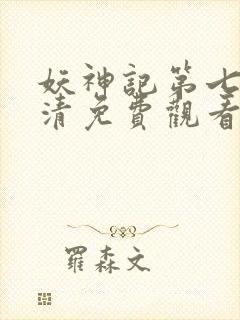 妖神記第七
清免費觀看
羅森文